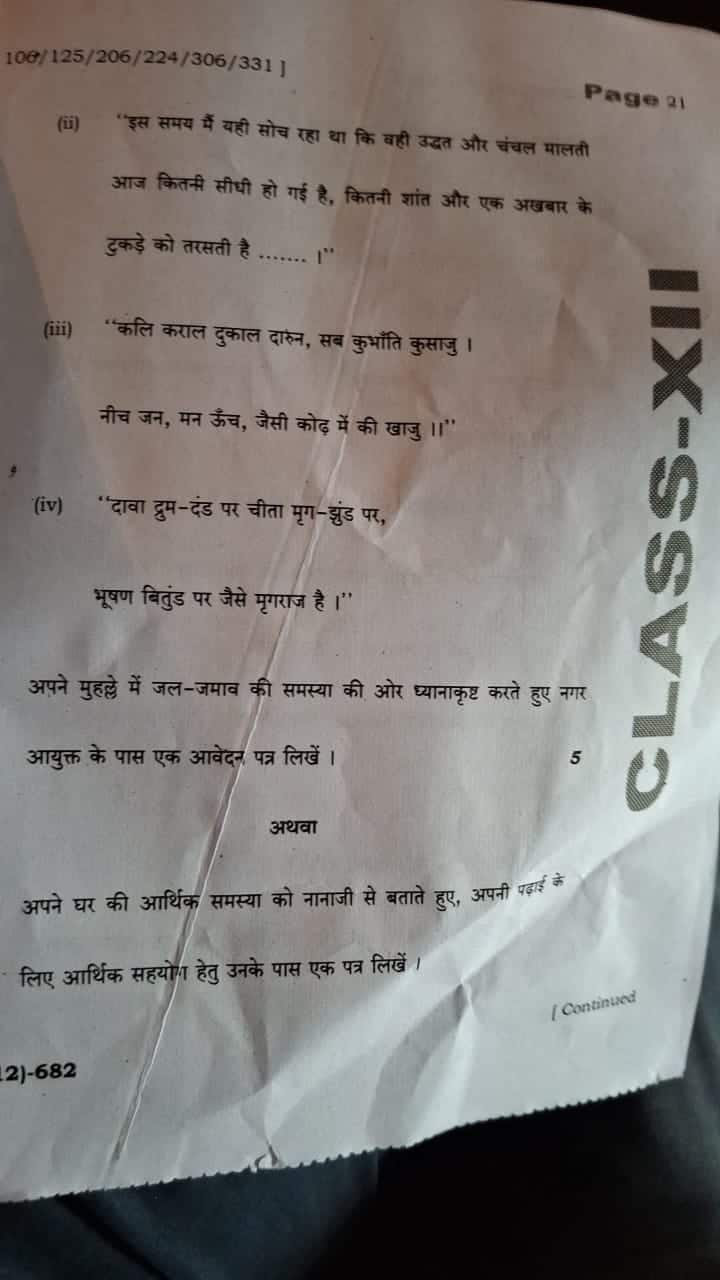 100/125/206/224/306/331 ]
Page 21
(ii) “इस समय मैं यही सोच रहा था कि वही उद्धत और चंचल मालती
आज कितनी सीधी हो गई है, कितनी शांत और एक अखबार के
टुकड़े को तरसती है ....... ।”
(iii) “कलि कराल दुकाल दारुन, सब कुभाँति कुसाजु ।
नीच जन, मन ऊँच, जैसी कोढ़ में की खाजु ।।”
(iv) “दावा द्रुम-दंड पर चीता मृग-झुंड पर,
भूषण बितुंड पर जैसे मृगराज है ।”
अपने मुहल्ले में जल-जमाव की समस्या की ओर ध्यानाकृष्ट करते हुए नगर
आयुक्त के पास एक आवेदन पत्र लिखें । 5
अथवा
अपने घर की आर्थिक समस्या को नानाजी से बताते हुए, अपनी पढ़ाई के
लिए आर्थिक सहयोग हेतु उनके पास एक पत्र लिखें ।
[ Continued
2)-682
CLASS-XII